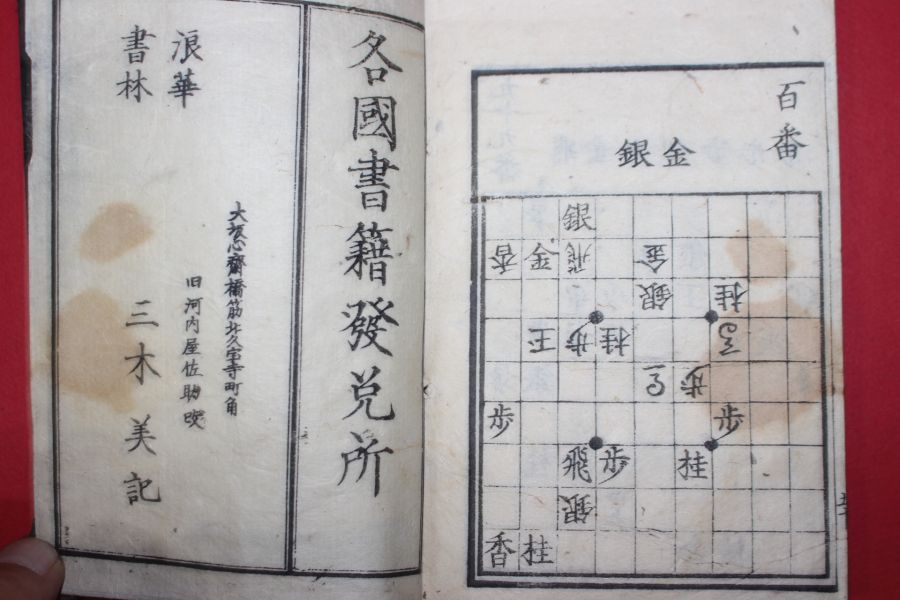 百番
金銀
銀
香金飛金
銀桂
玉歩桂
歩
歩歩
飛歩桂
銀
香桂
各國書籍發兌所
大坂心齋橋筋北久宝寺町角
旧河内屋佐助
浪華
書林
三木美記